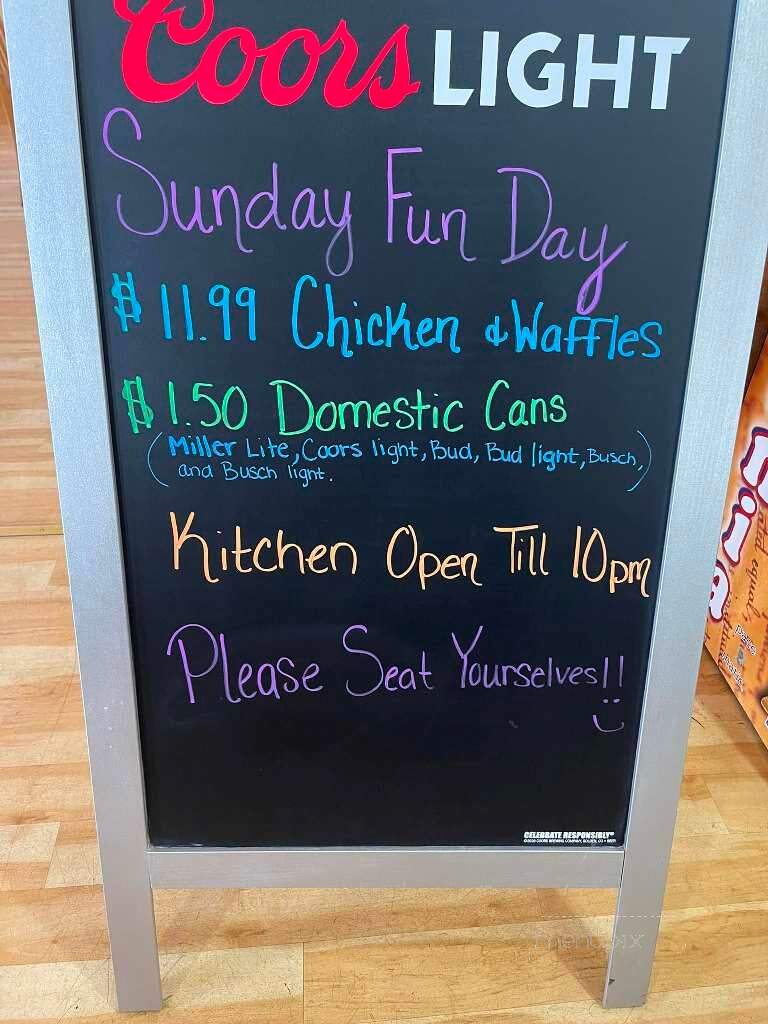 Coors LIGHT
Sunday Fun Day
$11.99 Chicken & Waffles
$1.50 Domestic Cans
(Miller Lite, Coors light, Bud, Bud light, Busch,
and Busch light.)
Kitchen Open Till 10pm
Please Seat Yourselves!!
CELEBRATE RESPONSIBLY®